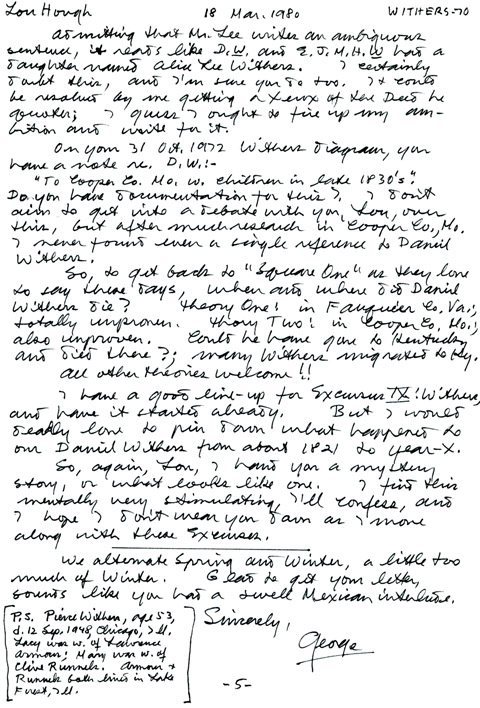 Lou Hough 18 Mar. 1980 WITHERS-70
Admitting that Mr. Lee writes an ambiguous
sentence, it reads like D.W. and E.J.M.H.W had a
daughter named Alice Lee Withers. I certainly
doubt this, and I'm sure you do too. It could
be resolved by me getting a Xerox of the Deed he
quotes; I guess I ought to fire up my am-
bition and write for it.
On your 31 Oct. 1972 Withers diagram, you
have a note re. D.W.:-
"To Cooper Co. Mo. w. children in late 1830's".
Do you have documentation for this? I don't
aim to get into a debate with you, Lou, over
this, but after much research in Cooper Co., Mo.
I never found even a single reference to Daniel
Withers.
So, to get back to "Square One" as they love
to say these days, when and where did Daniel
Withers die? Theory One: in Fauquier Co. Va.;
totally unproven. Theory Two: in Cooper Co. Mo.;
also unproven. Could he have gone to Kentucky
and died there?; many Withers migrated to Ky.
All other theories welcome!!
I have a good line-up for Excursus IX: Withers,
and have it started already. But I would
dearly love to pin down what happened to
our Daniel Withers from about 1821 to year-X.
So, again, Lou, I hand you a mystery
story, or what looks like one. I find this
mentally very stimulating, I'll confess, and
I hope I don't wear you down as I move
along with these Excursus.
We alternate Spring and Winter, a little too
much of Winter. Glad to get your letter,
sounds like you had a swell Mexican interlude.
Sincerely,
George
P.S. Pierce Withers, age 53,
d. 12 Sep. 1948, Chicago, Ill.
Lacy was w. of Laurance
Armour; Mary was w. of
Clive Runnels. Armour &
Runnels both lived in Lake
Forest, Ill.
-5-